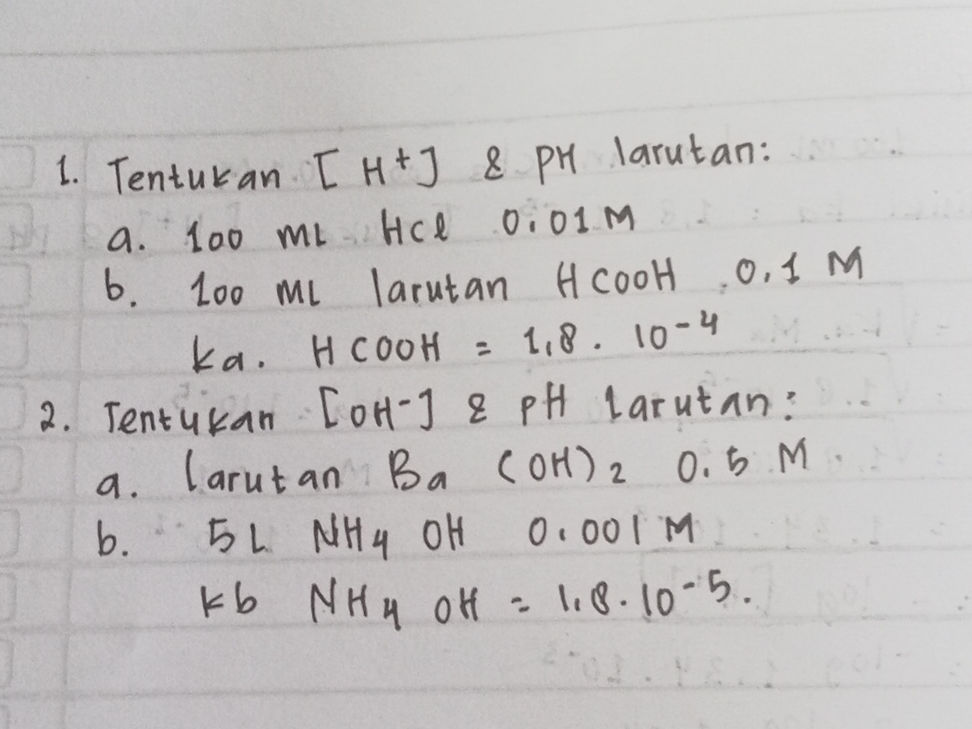 1. Tentukan [H+] & PH larutan:
a. 100 mL HCl 0.01 M
b. 100 mL larutan HCOOH 0,1 M
ka. HCOOH = 1,8 . 10-4
2. Tentukan [OH-] & pH larutan:
a. larutan Ba (OH)2 0.5 M
b. 5 L NH4 OH 0.001 M
kb NH4 OH = 1,8.10-5.